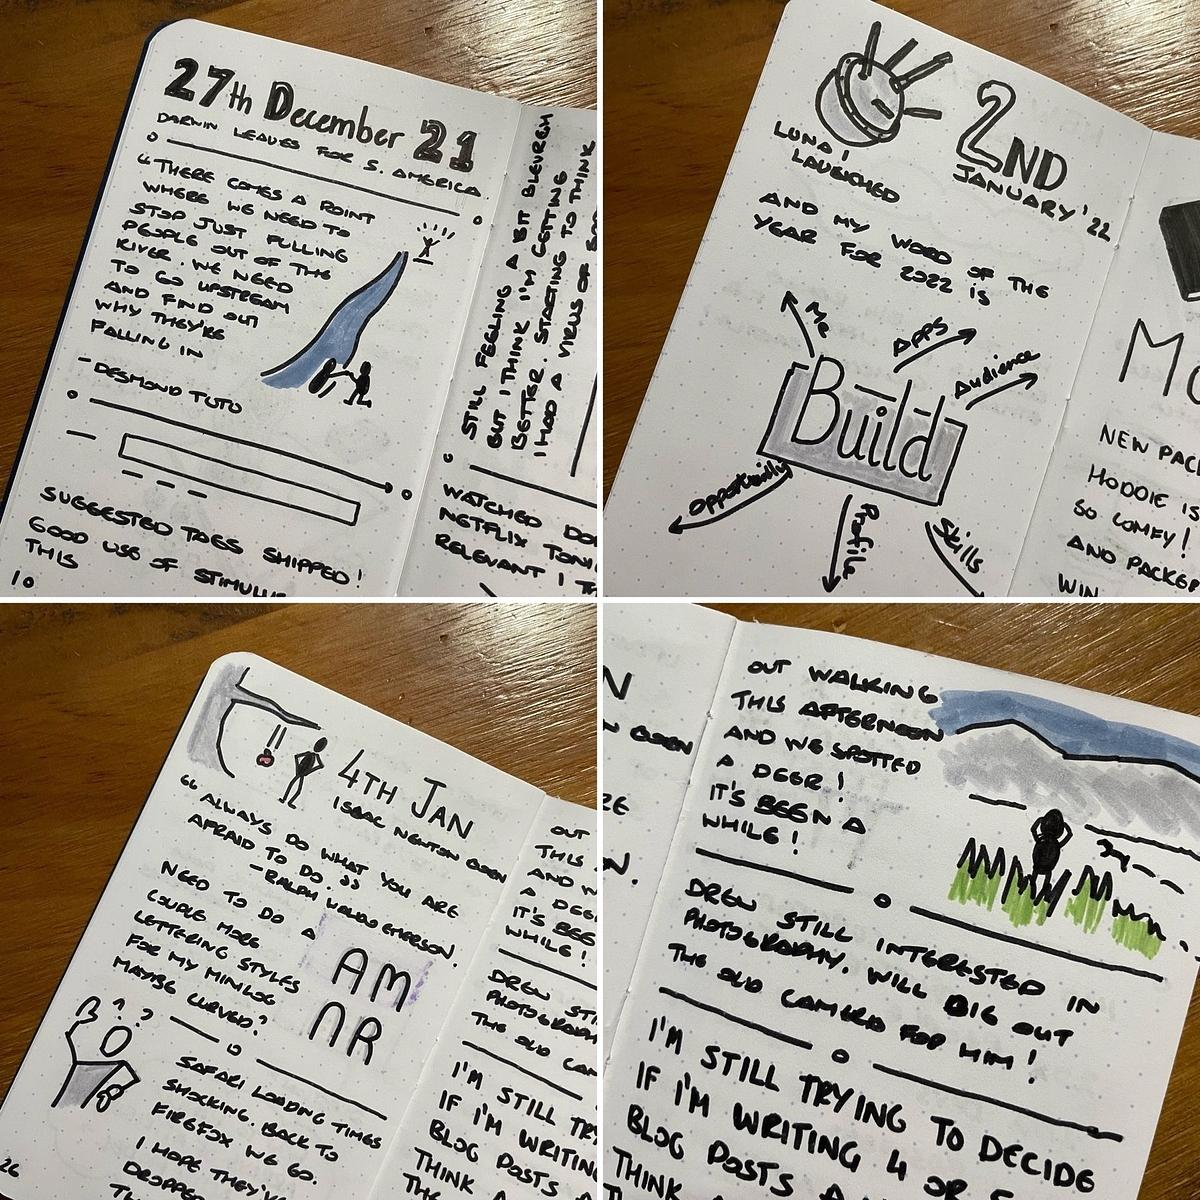 27th December 21
DARWIN LEAVES FOR S. AMERICA
"THERE COMES A POINT
WHERE WE NEED TO
STOP JUST PULLING
PEOPLE OUT OF THE
RIVER. WE NEED
TO GO UPSTREAM
AND FIND OUT
WHY THEY'RE
FALLING IN
- DESMOND TUTU
SUGGESTED TAGS SHIPPED!
GOOD USE OF STIMULUS
THIS
10
STILL FEELING A BIT BLEURGH
BUT I THINK I'M GETTING
BETTER. STARTING TO THINK
I HAD A VIRUS OF
WATCHED
NETFLIX
RELEVANT!
LUNA 1
LAUNCHED
2ND
JANUARY '22
AND MY WORD OF THE
YEAR FOR 2022 IS
Me
Apps
Audience
Build
Opportunity
Profile
Skills
NEW
HOODIE IS
SO COMFY!
AND
WIN
4TH JAN
ISAAC NEWTON BORN
"ALWAYS DO WHAT YOU ARE
AFRAID TO DO."
- RALPH WALDO EMERSON.
NEED TO DO A
COUPLE MORE
LETTERING STYLES
FOR MY MINILOG
MAYBE CURVED?
AM
NR
? ? ?
SAFARI LOADING TIMES
SHOCKING. BACK TO
FIREFOX WE GO.
I HOPE THEY'VE
DROPPED
26
OUT
THIS
AND W
A DEE
IT'S BEE
WHILE!
DREW STI
PHOTOGRAPH
THE OLD CAM
I'M STILL TRY
IF I'M WRITING
BLOG POSTS
THINK A
THE
OUT WALKING
THIS AFTERNOON
AND WE SPOTTED
A DEER!
IT'S BEEN A
WHILE!
DREW STILL INTERESTED IN
PHOTOGRAPHY. WILL DIG OUT
THE OLD CAMERA FOR HIM!
I'M STILL TRYING TO DECIDE
IF I'M WRITING 4 OR
BLOG POSTS A
THINK